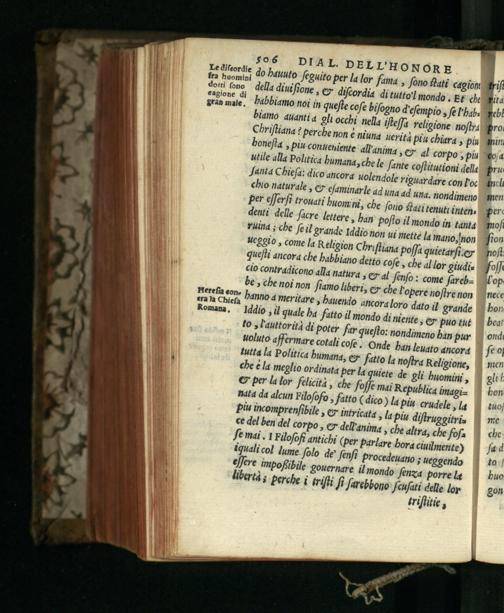 506 DIAL. DELL'HONORE
Le discordie
fra huomini
dotti sono
cagione di
gran male.
do hauuto seguito per la lor fama, sono stati cagione
della diuisione, & discordia di tutto'l mondo. Et che
habbiamo noi in queste cose bisogno d'esempio, se l'hab-
biamo auanti a gli occhi nella istessa religione nostra
Christiana? perche non è niuna uerità piu chiara, piu
honesta, piu conueniente all'anima, & al corpo, piu
utile alla Politica humana, che le sante costitutioni della
santa Chiesa: dico ancora uolendole riguardare con l'oc
chio naturale, & esaminarle ad una ad una. nondimeno
per essersi trouati huomini, che sono stati tenuti inten-
denti delle sacre lettere, han posto il mondo in tanta
ruina; che se il grande Iddio non ui mette la mano, non
ueggio, come la Religion Christiana possa quietarsi. &
questi ancora che habbiano detto cose, che al lor giudi-
cio contradicono alla natura, & al senso: come sareb-
be, che noi non siamo liberi, & che l'opere nostre non
Heresia con-
tra la Chiesa
Romana.
hanno a meritare, hauendo ancora loro dato il grande
Iddio, il quale ha fatto il mondo di niente, & puo tut
to, l'auttorità di poter far questo: nondimeno han pur
uoluto affermare cotali cose. Onde han leuato ancora
tutta la Politica humana, & fatto la nostra Religione,
che è la meglio ordinata per la quiete de gli huomini,
& per la lor felicità, che fosse mai Republica imagi-
nata da alcun Filosofo, fatto (dico) la piu crudele, la
piu incomprensibile, & intricata, la piu distruggitri-
ce del ben del corpo, & dell'anima, che altra, che fos-
se mai. I Filosofi antichi (per parlare hora ciuilmente)
iquali col lume solo de' sensi procedeuano; ueggendo
essere impossibile gouernare il mondo senza porre la
libertà; perche i tristi si sarebbono scusati delle lor
tristitie,